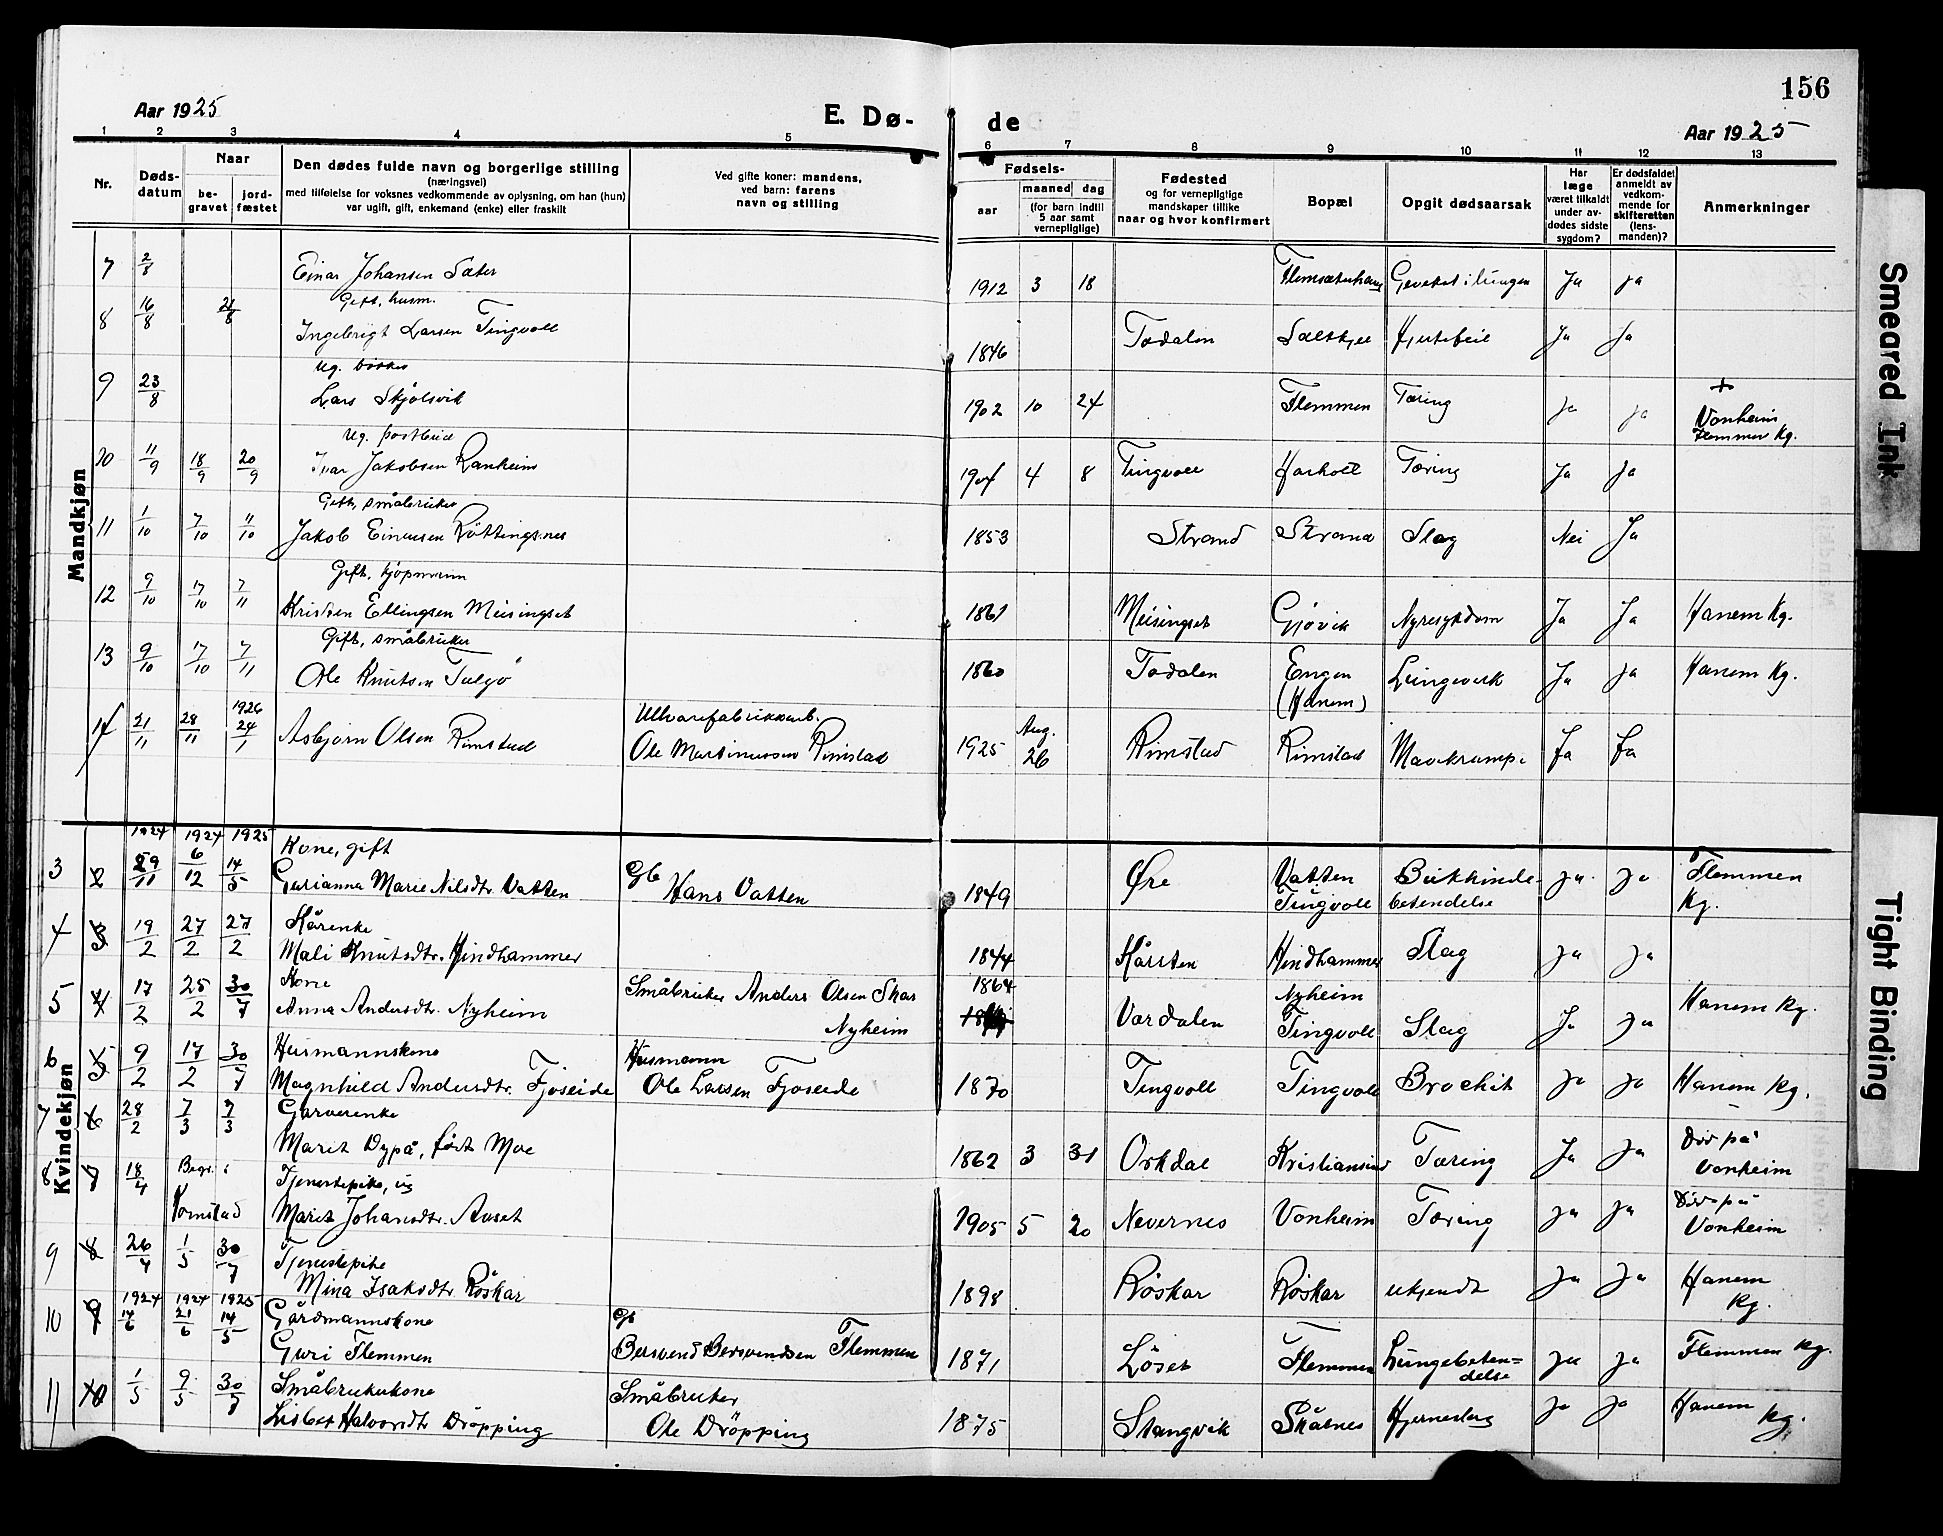 156
Aar 1925
E. Dø-
de
Aar 1925
1 2 3 4 5 6 7 8 9 10 11 12 13
Nr.
Døds-
datum
Naar
be-
gravet
jord-
fæstet
Den dødes fulde navn og borgerlige stilling
(næringsvei)
med tilføielse for voksnes vedkommende av oplysning, om han (hun)
var ugift, gift, enkemand (enke) eller fraskilt
Ved gifte koner: mandens,
ved barn: farens
navn og stilling
Fødsels-
aar
maaned dag
(for barn indtil
5 aar samt
vernepligtige)
Fødested
og for vernepligtige
mandskaper tillike
naar og hvor konfirmert
Bopæl
Opgit dødsaarsak
Har
læge
været tilkaldt
under av-
dødes sidste
sygdom?
Er dødsfaldet
anmeldt av
vedkom-
mende for
skifteretten
(lens-
manden)?
Anmerkninger
Mandkjøn
7 2/8 Einar Johansen Sæter 1912 3 18 Ja ja
Gift, husm.
8 16/8 21/8 Ingebrigt Larsen Tingvoll 1846 Todalen Hjertefeil Ja Ja
ug.
9 23/8 Lars Skjølsvik 1902 10 24 Flemmen Tæring ja ja +
Vonheim
Flemmen Kg.
ug. postbud
10 11/9 18/9 20/9 Ivar Jakobsen Ranheim 1904 4 8 Tingvoll Tæring Ja Ja
Gift, småbruker
11 1/10 7/10 11/10 Jakob Einarsen Røttingsnes 1853 Strand Strand Slag Nei Ja
Gift, kjøpmann
12 9/10 17/10 7/11 Kristen Ellingsen Meisingset 1861 Meisingset Gjøvik Nyresykdom Ja Ja Hanem Kg.
Gift, småbruker
13 9/10 17/10 7/11 Ole Knutsen Talgø 1860 Todalen Engen
(Hanem) Ja ja Hanem Kg.
1926
14 21/11 28/11 24/1 Asbjørn Olsen Rimstad Ullvarefabrikkarb.
Ole Martinussen Rimstad 1925 Aug.
26 Rimstad Rimstad Mavekrampe Ja Ja
Kvindekjøn
1924 1924 1925 Kone, gift
3 2 29/11 6/12 14/5 Gurianna Marie Nilsdtr. Vatten
Hans Vatten 1849 Øre Vatten
Tingvoll Blikkinde-
betendelse ja ja Flemmen
Kg.
4 3 19/2 27/2 27/2 Kårenke
Mali Knutsdtr. Hindhammer 1844 Kårsten Hindhammer Slag ja ja
5 4 17/2 25/2 30/7 Kone
Anna Andersdtr. Nyheim Småbruker Anders Olsen Skar
Nyheim 1864
Vardalen Nyheim
Tingvoll Slag Ja ja Hanem Kg.
6 5 9/2 17/2 30/7 Husmannskone
Magnhild Andersdtr. Fjøseide Husmann
Ole Larsen Fjøseide 1870 Tingvoll Tingvoll Brochit ja ja Hanem Kg.
7 6 28/2 7/3 7/3 Garverenke
Marit Dypå, født Moe 1862 3 31 Orkdal Kristiansund Tæring Ja ja Død på
Vonheim
8 7 18/4 Begr. i
Kornstad Tjenestepike, ug
Marit Johansdtr. Auset 1905 5 20 Nevernes Vonheim Tæring ja ja Død på
Vonheim
9 8 26/4 1/5 30/7 Tjenestepike
Mina Isaksdtr. Røskar 1898 Røskar Røskar ukjendt ja ja Hanem
Kg.
1924 1924 1925
10 9 14/6 21/6 14/5 Gårdmannskone
Guri Flemmen
Bersvend Bersvendsen Flemmen 1871 Løset Flemmen Lungebeten=
delse ja ja Flemmen Kg.
11 10 1/5 9/5 30/7 Småbrukerkone
Lisbet Halvorsdtr Drøpping Småbruker
Ole Drøpping 1875 Stangvik Skarnes Hjerneslag ja ja Hanem Kg.
Smeared Ink
Tight Binding